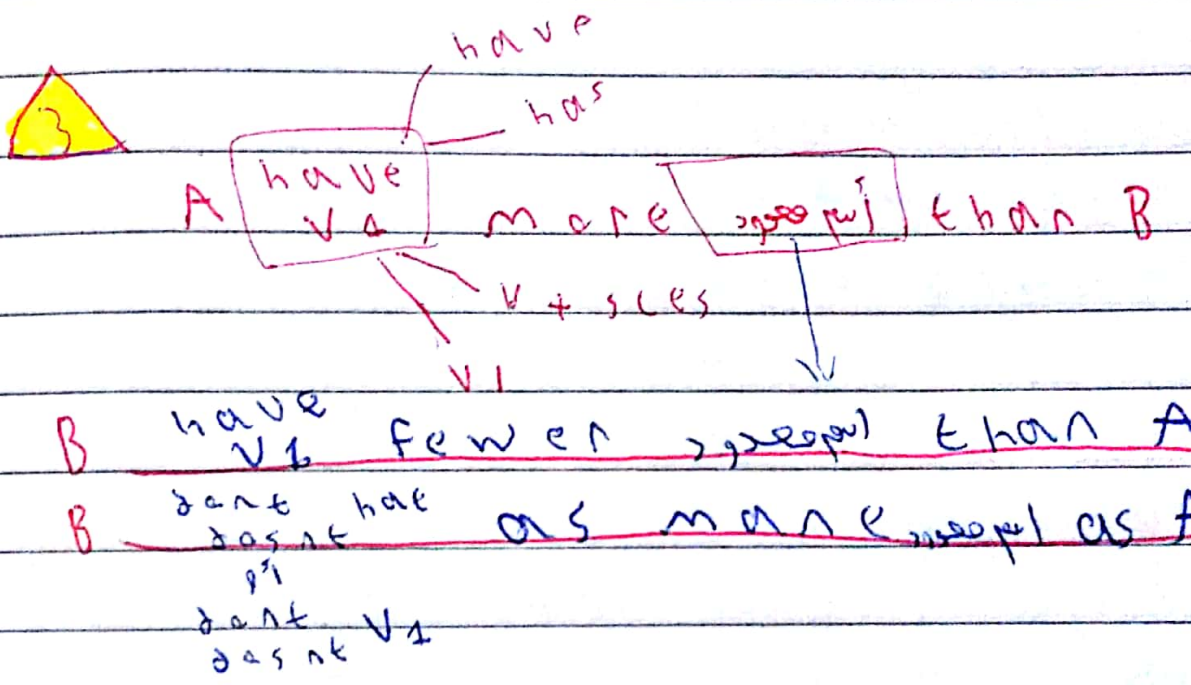 have
3
has
A have V1 more أسم معدود than B
V + s(es
V1
B have V1 fewer اسم معدود than A
B dont dosnt as mane اسم معدود as
dont V1
dosnt